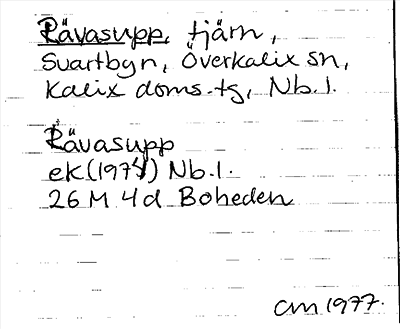 Rävasupp, tjärn,
Svartbyn, Överkalix sn,
Kalix doms.tg, Nb.l.
Rävasupp
ek(1974) Nb.l.
26 M 4d Boheden
cm 1977.